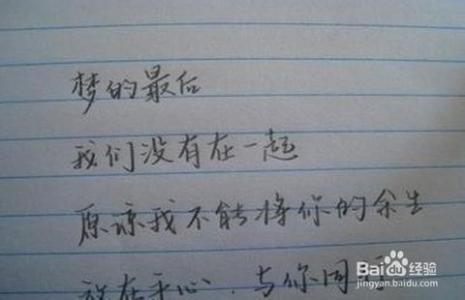 梦的最后
我们没有在一起
原谅我不能将你的余生
放在手心，与你同行
Baidu 百度经验
jingyan.baidu.com